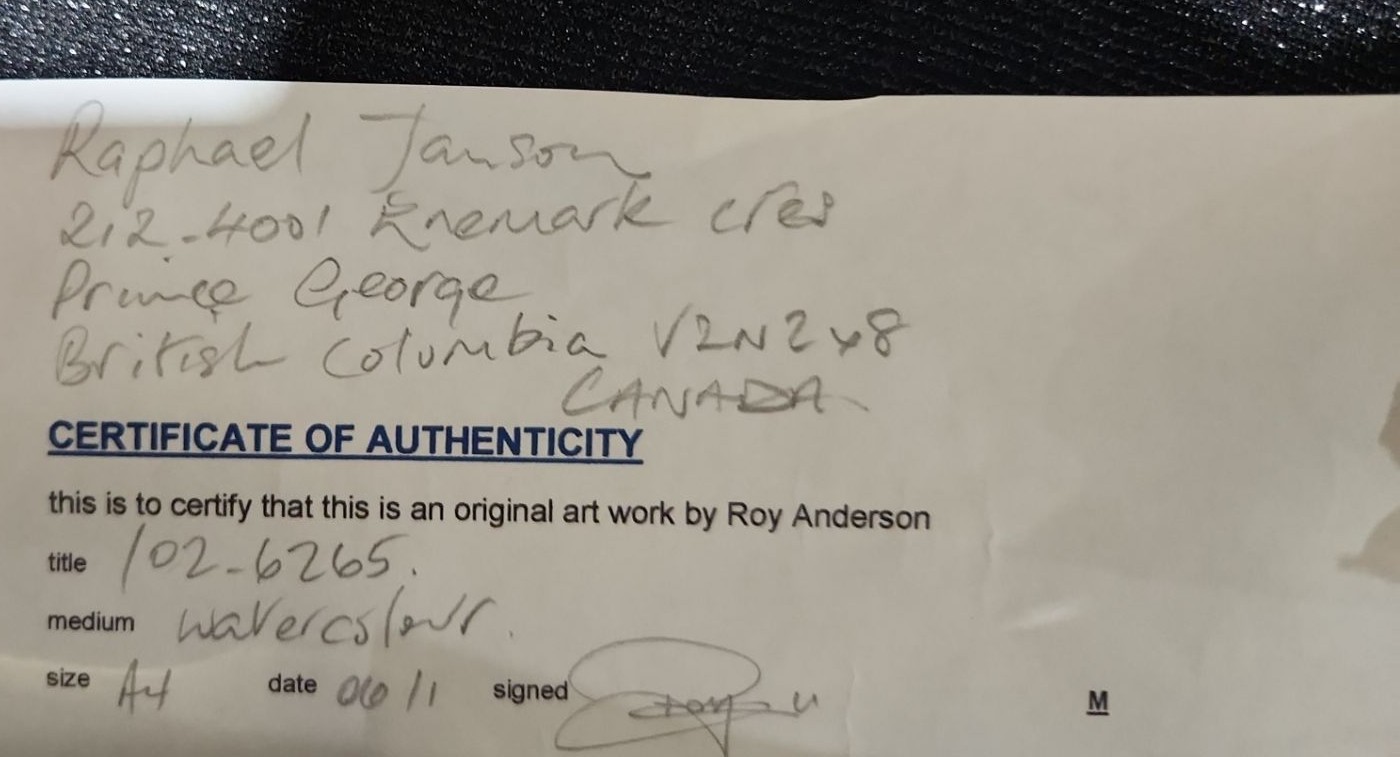 Raphael Janson
212-4001 Knemark cres
Prince George
British Columbia V2N2X8
CANADA
CERTIFICATE OF AUTHENTICITY
this is to certify that this is an original art work by Roy Anderson
title 102-6265.
medium watercolour.
size A4 date 06/1 signed
M